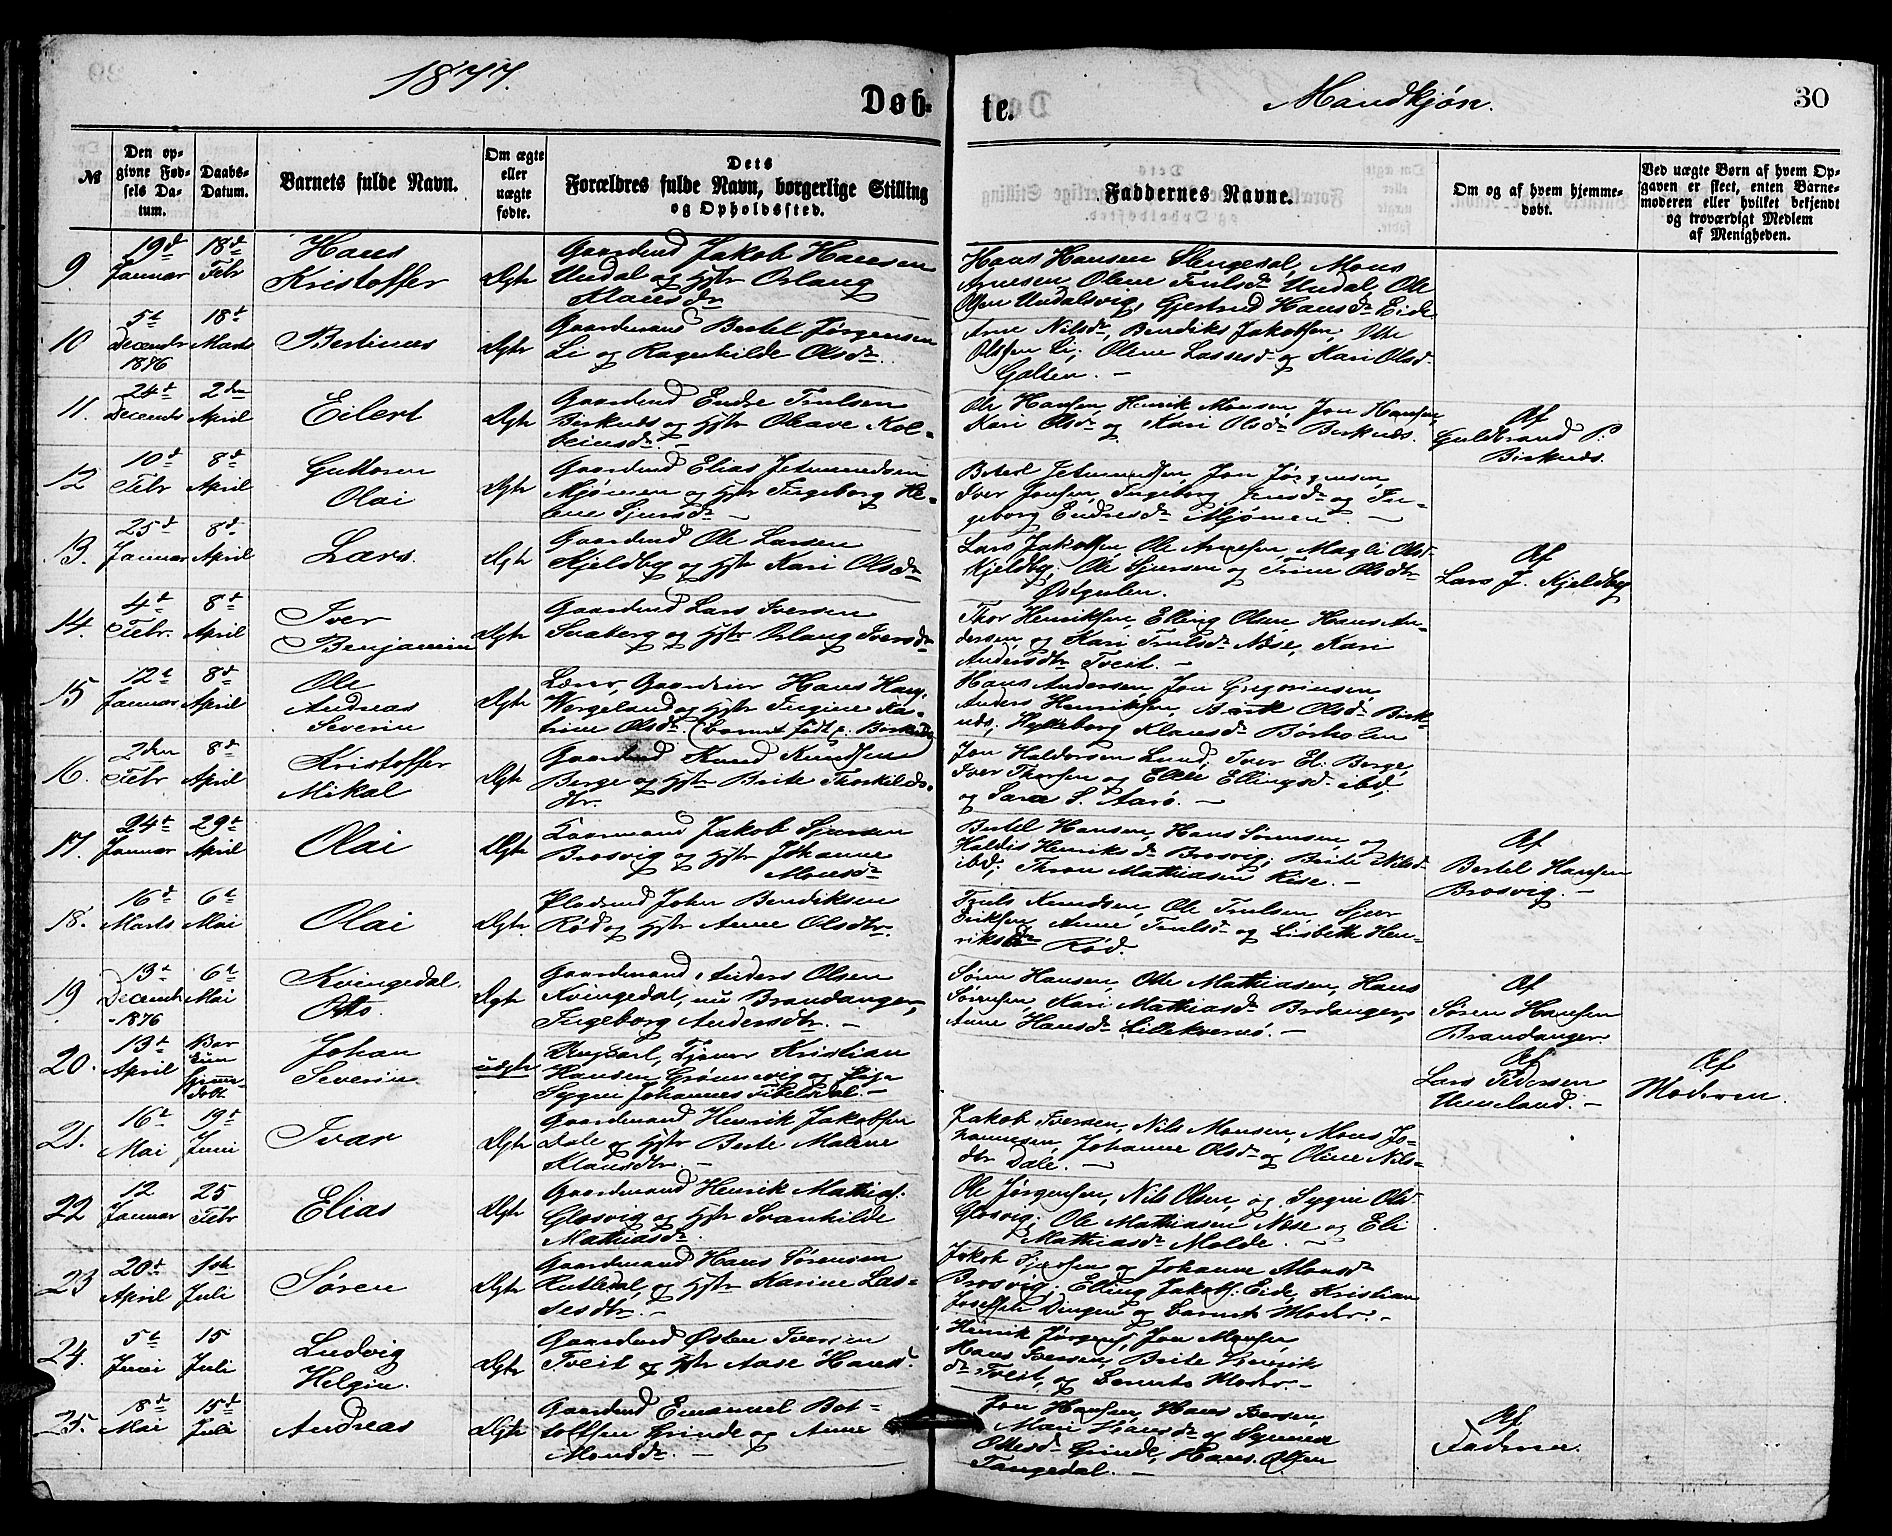 1877.
Døb-
te.
Mandkjøn.
30
№
Den op-
givne Fød-
sels Da-
tum.
Daabs-
Datum.
Barnets fulde Navn.
Om ægte
eller
uægte
fødte.
Dets
Forældres fulde Navn, borgerlige Stilling
og Opholdssted.
Faddernes Navne.
Om og af hvem hjemme-
døbt.
Ved uægte Børn af hvem Op-
gaven er skeet, enten Barne-
moderen eller hvilket bekjendt
og troværdigt Medlem
af Menigheden.
9
19d Januar
18d Febr
Hans
Kristoffer
Ægte
Gaardmd Jakob Hansen
Undal og Hstr Oslaug
Klausdr
Hans Hansen Slengesol, Mons
Arnesen, Olene Trulsdr Undal, Ole
Olsen Undalsvig, Gjertrud Hansdr Eide
10
5t Decembr 1876
18t Marts
Bertinus
Ægte
Gaardmand Bertel Jørgensen
Li og Ragnhilde Olsdr.
Arne Nilsdr, Bendiks Jakobsen, Ole
Olssen Li; Olene Lassesdr og Kari Olsd.
Galten. -
11.
24t Decembr
2den April
Eilert
Ægte
Gaardmd Endre Trulsen
Birknæs og Hstr Oleave Kol-
beinsdr -
Ole Hansen, Henrik Monsen, Jon Hansen,
Kari Olsdr og Kari Olsdr Birknes.
Af
Guldbrand P.
Birknes.
12
10d Febr
8d April
Guttorm
Olai
Ægte
Gaardmd Elias Jetmundsen
Mjømen og Hstr Ingeborg He-
lene Sjursdr -
Bertel Jetmundsen, Jon Jørgensen,
Iver Jonsen, Ingeborg Jensdr og In-
geborg Endresdr Mjømen -
13.
25d Januar
8d April
Lars.
Ægte
Gaardmd Ole Larsen
Kjeldby og Hstr Kari Olsdr
Lars Jakobsen, Ole Arnesen, Magli Olsd
Kjeldby; Ole Sjursen og Trine Olsdtr
Østgulen.
Af
Lars J. Kjeldby
14.
4t Febr.
8d April
Iver
Benjamin
Ægte
Gaardmd Lars Iversen
Snaberg og Hstr Oslaug Iversdr
Thor Henriksen, Elling Olsen, Hans An-
dersen og Kari Trulsdr Nese, Kari
Andersdtr Tveit. -
15
12t Januar
8d April
Ole
Andreas
Severin
Ægte
Lærer, Gaardeier Hans Hans.
Wergeland og Hstr Ingine Ka-
trine Olsdtr. (barnet født p. Birknes)
Hans Andersen, Jon Gregoriusen,
Anders Henriksen, Berit Olsdr Birk-
nes, Hylleborg Klausdr Børholen
16.
2den Febr
8d April
Kristoffer
Mikal
Ægte
Gaardmd Knud Knudsen
Berge og Hstr Brite Thorkilds-
dtr.
Jon Haldorsen Lund; Iver El. Berge,
Iver Thorsen og Ellen Ellingsdr ibd;
og Sara S. Aarø. -
17.
24t Januar
29t April
Olai
Ægte
Kaarmand Jakob Sjursen
Brosvig og Hstr Johanne
Monsdr
Bertel Hansen, Hans Sørensen og
Haldis Henriksdr Brosvig; Brite Nilsd
ibd; Thron Mathiasen Rise. -
Af
Bertel Hansen
Brosvig. -
18.
16d Marts
6t Mai
Olai
Ægte.
Pladsmd John Bendiksen
Rød og Hstr Anne Olsdtr.
Truls Knudsen, Ole Trulsen, Sjur
Eriksen, Anne Trulsdr og Lisbeth Hen-
riksdr Rød.
19
13t Decembr -1876
6t Mai
Kvingedal
Otto.
Ægte
Gaardmand Anders Olsen
Kvingedal, nu Brandanger,
Ingeborg Andersdtr. -
Søren Hansen, Otte Mathiasen, Hans
Sørensen, Kari Mathiasdr Brdanger,
Anne Hansdr Lillekvernø. -
Af
Søren Hansen
Brandanger
20.
13t April
Bar
kun
hjemme-
døbt.
Johan
Severin
uægte
Ungkarl, Tjener Kristian
Hansen Grønevig og Pige
Sygni Johannes Tibelsdal. -
Af
Lars Pedersen
Unneland. -
Af
Moderen.
21.
16t Mai
19t Juni
Ivar
Ægte
Gaardmand Henrik Jakobsen
Dale og Hstr Berte Malene
Klausdtr. -
Jakob Iversen, Nils Monsen, Mons Jo-
hannesen, Johanne Olsdr og Oline Nils-
dtr Dale. -
22
12 Januar
25 Febr
Elias
Ægte
Gaardmand Henrik Mathias.
Glosvig og Hstr Svanhilde
Mathiasdr.
Ole Jørgensen, Nils Olsen, og Sygni Olsd
Glosvig; Ole Mathiasen Nese og Eli
Mathiasdr Molde. -
23
20d April
1ste Juli
Søren
Ægte
Gaardmand Hans Sørensen
Rutledal, og Hstr Karine Las-
sesdtr. -
Jakob Sjursen og Johanne Monsdr
Brosvig; Elling Jakobs. Eide, Kristian
Josefsen Dingen og Barnets Moder. -
24.
5t Juni
15 Juli
Ludvig
Helgin.
Ægte
Gaardmd Østen Iversen
Tveit og Hstr Aase Hansd.
Henrik Jørgens, Jon Monsen,
Hans Iversen, Brite Henriks
dr Tveit, og Barnets Moder. -
25.
18t Mai
15d Juli
Andreas
Ægte
Gaardmd Emanuel Bot-
tolfsen Grinde og Anne
Monsdr. -
Jon Hansen, Hans Iversen,
Mari Hansdr og Synneva
Ottesdr Grinde, Hans Olsen
Tangedal. -
Af
Faderen.